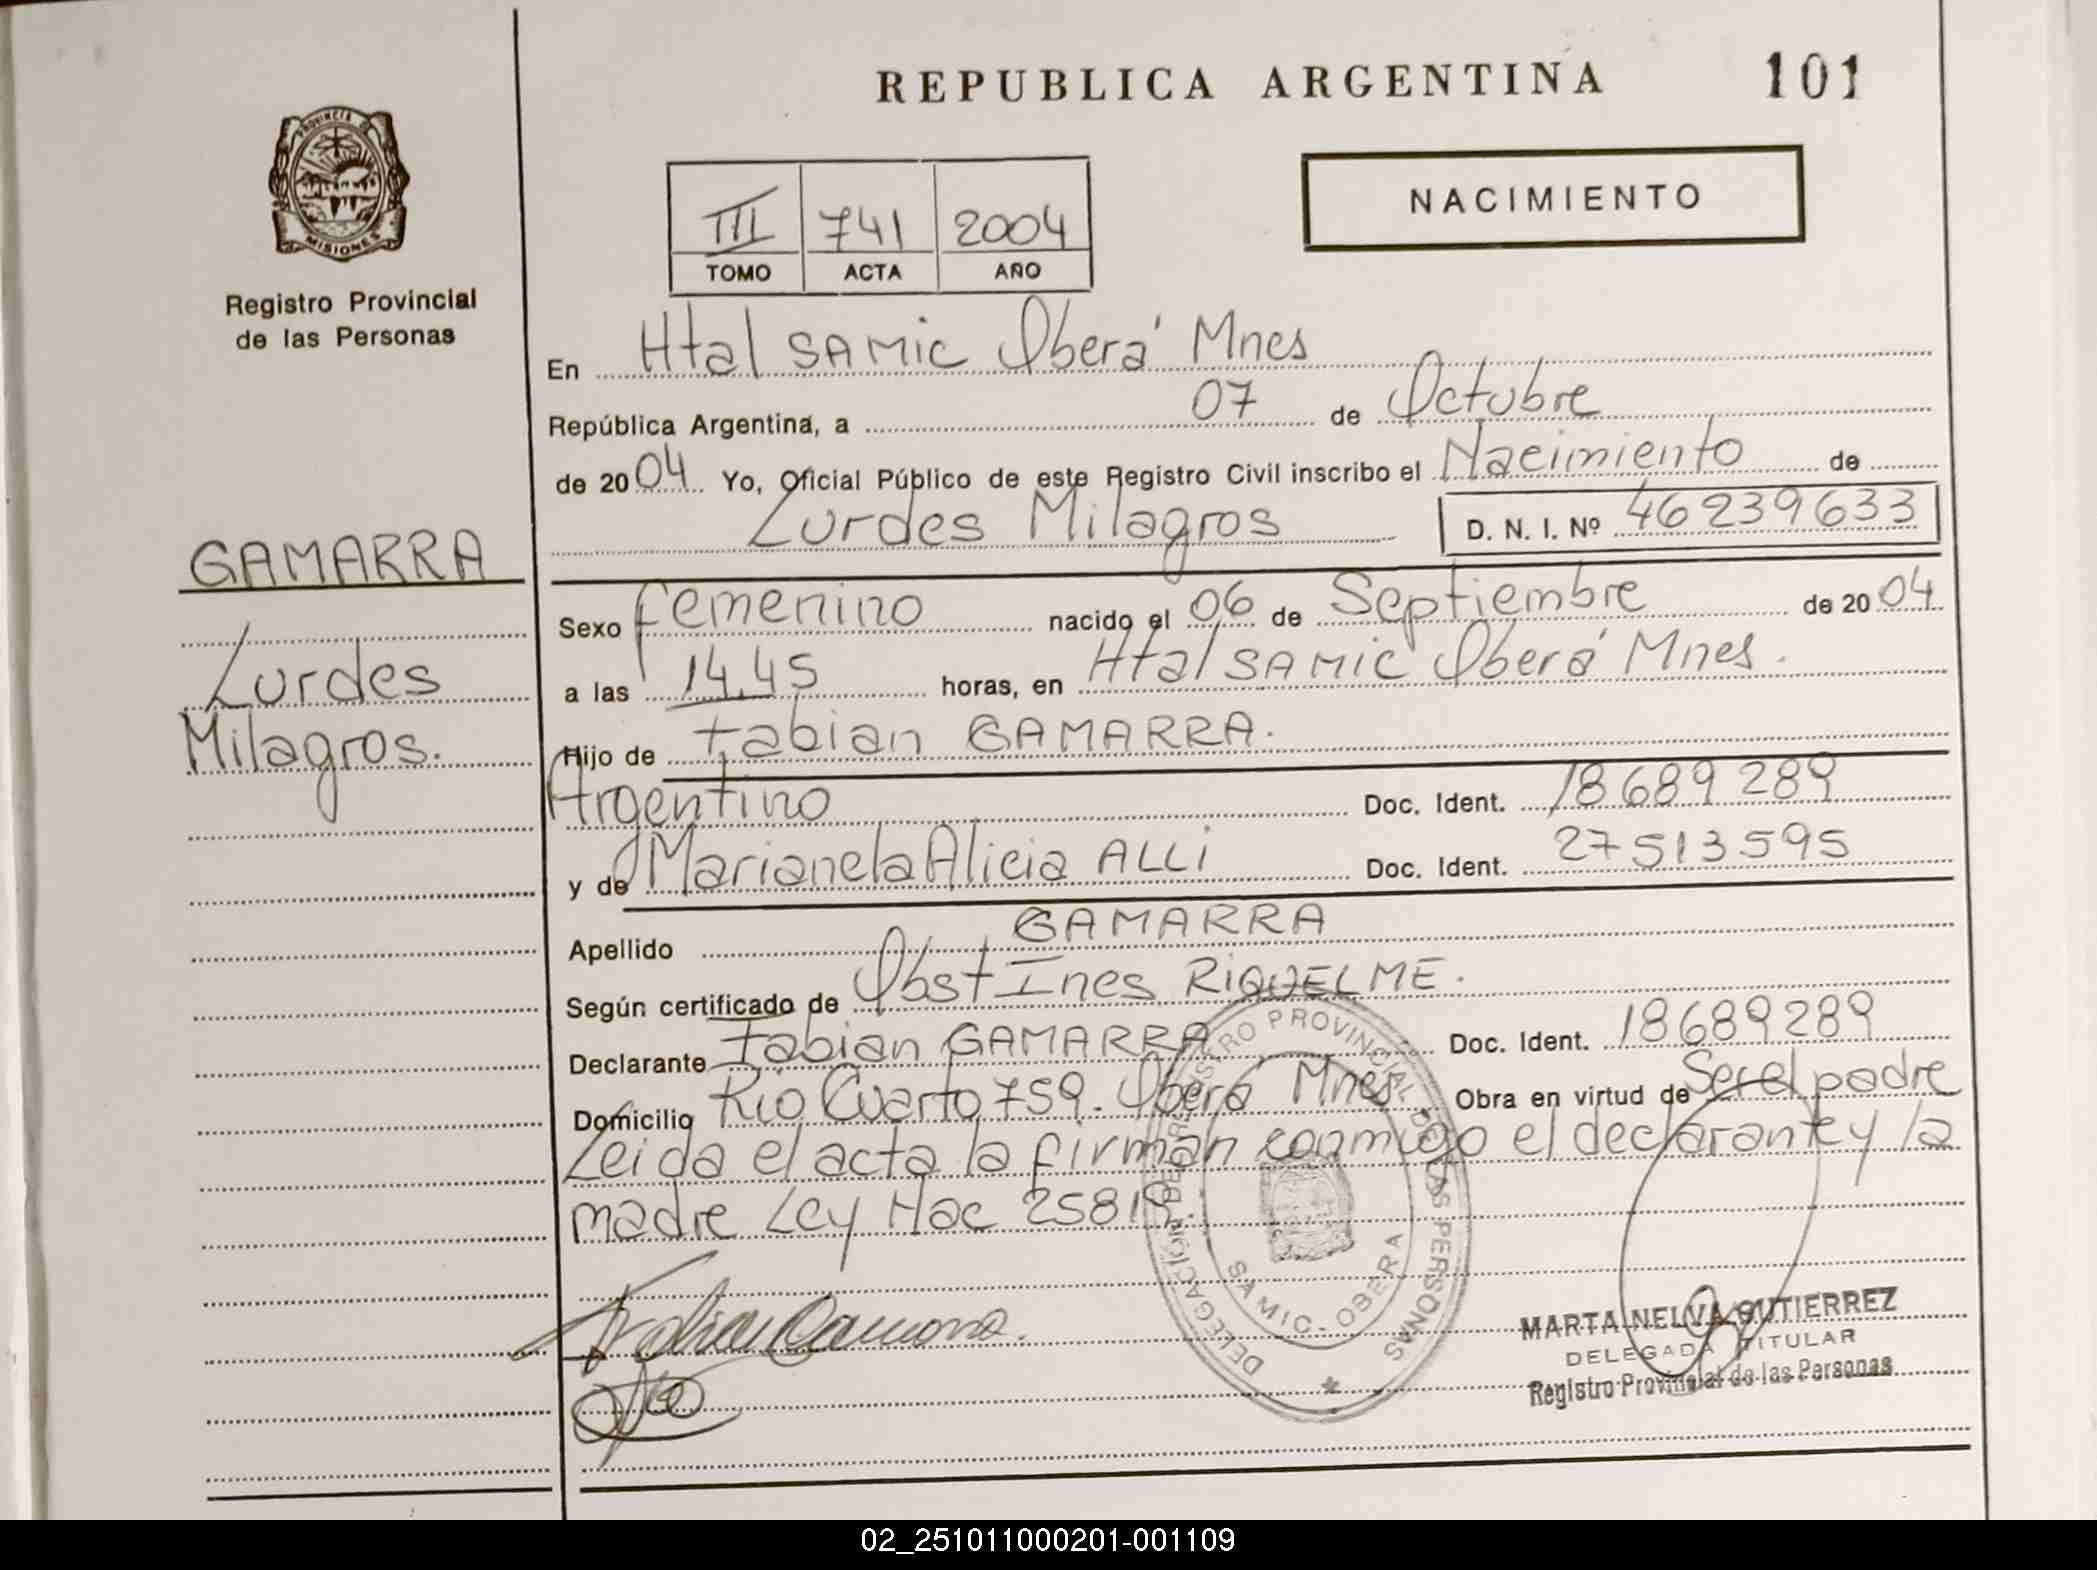 REPUBLICA ARGENTINA 101
PROVINCIA DE
MISIONES
Registro Provincial
de las Personas
NACIMIENTO
III 741 2004
TOMO ACTA AÑO
En Htal SAMIC Oberá Mnes
República Argentina, a 07 de Octubre
de 2004 Yo, Oficial Público de este Registro Civil inscribo el Nacimiento de
Lurdes Milagros D. N. I. Nº 46239633
GAMARRA
Lurdes
Milagros.
Sexo Femenino nacido el 06 de Septiembre de 2004
a las 14.45 horas, en Htal SAMIC Oberá Mnes.
Hijo de Fabian GAMARRA.
Argentino Doc. Ident. 18689289
y de Marianela Alicia ALLI Doc. Ident. 27513595
Apellido GAMARRA
Según certificado de Obst Ines RIQUELME.
Declarante Fabian GAMARRA Doc. Ident. 18689289
Domicilio Rio Cuarto 759. Oberá Mnes Obra en virtud de Ser el padre
Leida el acta la firman conmigo el declarante y la
madre Ley Nac 25819.
DELEGACIÓN DEL REGISTRO PROVINCIAL DE LAS PERSONAS
SAMIC - OBERA
Fabian Gamarra.
MARTA NELVA GUTIERREZ
DELEGADA TITULAR
Registro Provincial de las Personas
02_251011000201-001109